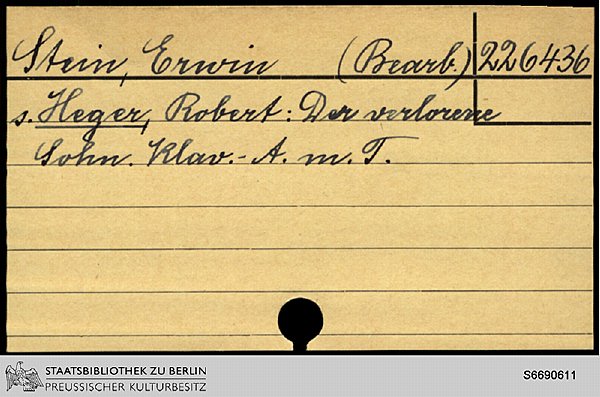 Stein, Erwin (Bearb.) 226436
s. Heger, Robert: Der verlorene
Sohn. Klav.-A. m. T.
STAATSBIBLIOTHEK ZU BERLIN
PREUSSISCHER KULTURBESITZ
S6690611